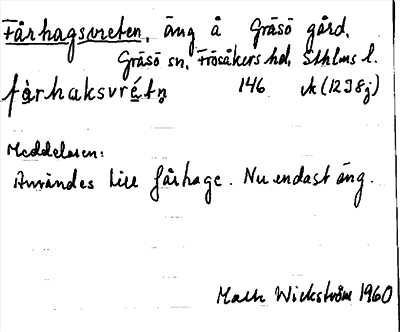 Fårhagsvreten, äng å Gräsö gård,
Gräsö sn, Frösåkers hd, Sthlms l.
fårhaksvrétn 146 (1238j)
Meddelaren:
Användes till fårhage. Nu endast äng.
Mats Wickström 1960